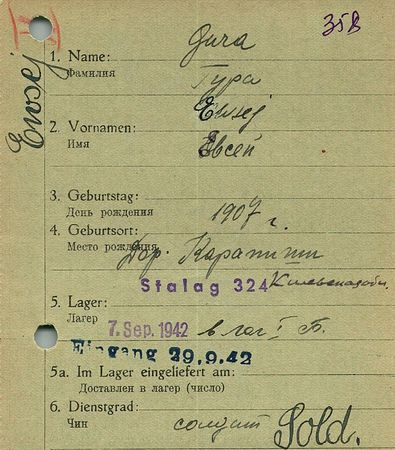 358
Ewsej
1. Name: Gura
Фамилия Гура
Ewsej
2. Vornamen:
Имя Евсей
3. Geburtstag:
День рождения 1907 г.
4. Geburtsort:
Место рождения
Stalag 324
5. Lager:
Лагер
7. Sep. 1942
Eingang 29.9.42
5a. Im Lager eingeliefert am:
Доставлен в лагер (число)
6. Dienstgrad:
Чин солдат Sold.